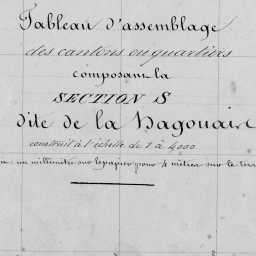 Tableau d'assemblage
des cantons ou quartiers
composant la
SECTION S
dite de la Hagouaire
construit à l'échelle de 1 à 4000
un millimètre sur le papier pour 4 mètres sur le